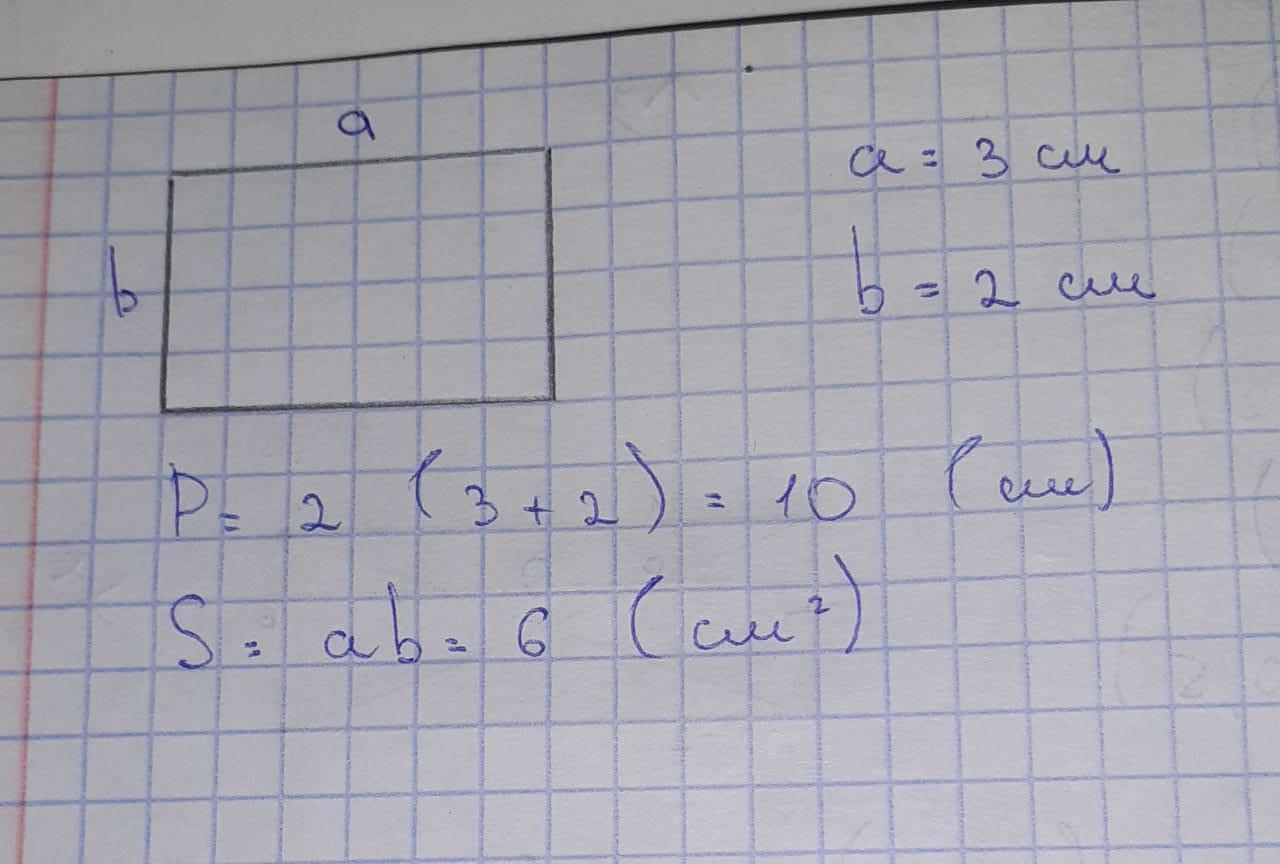 a
a = 3 см
b
b = 2 см
P = 2 (3 + 2) = 10 (см)
S = ab = 6 (см²)